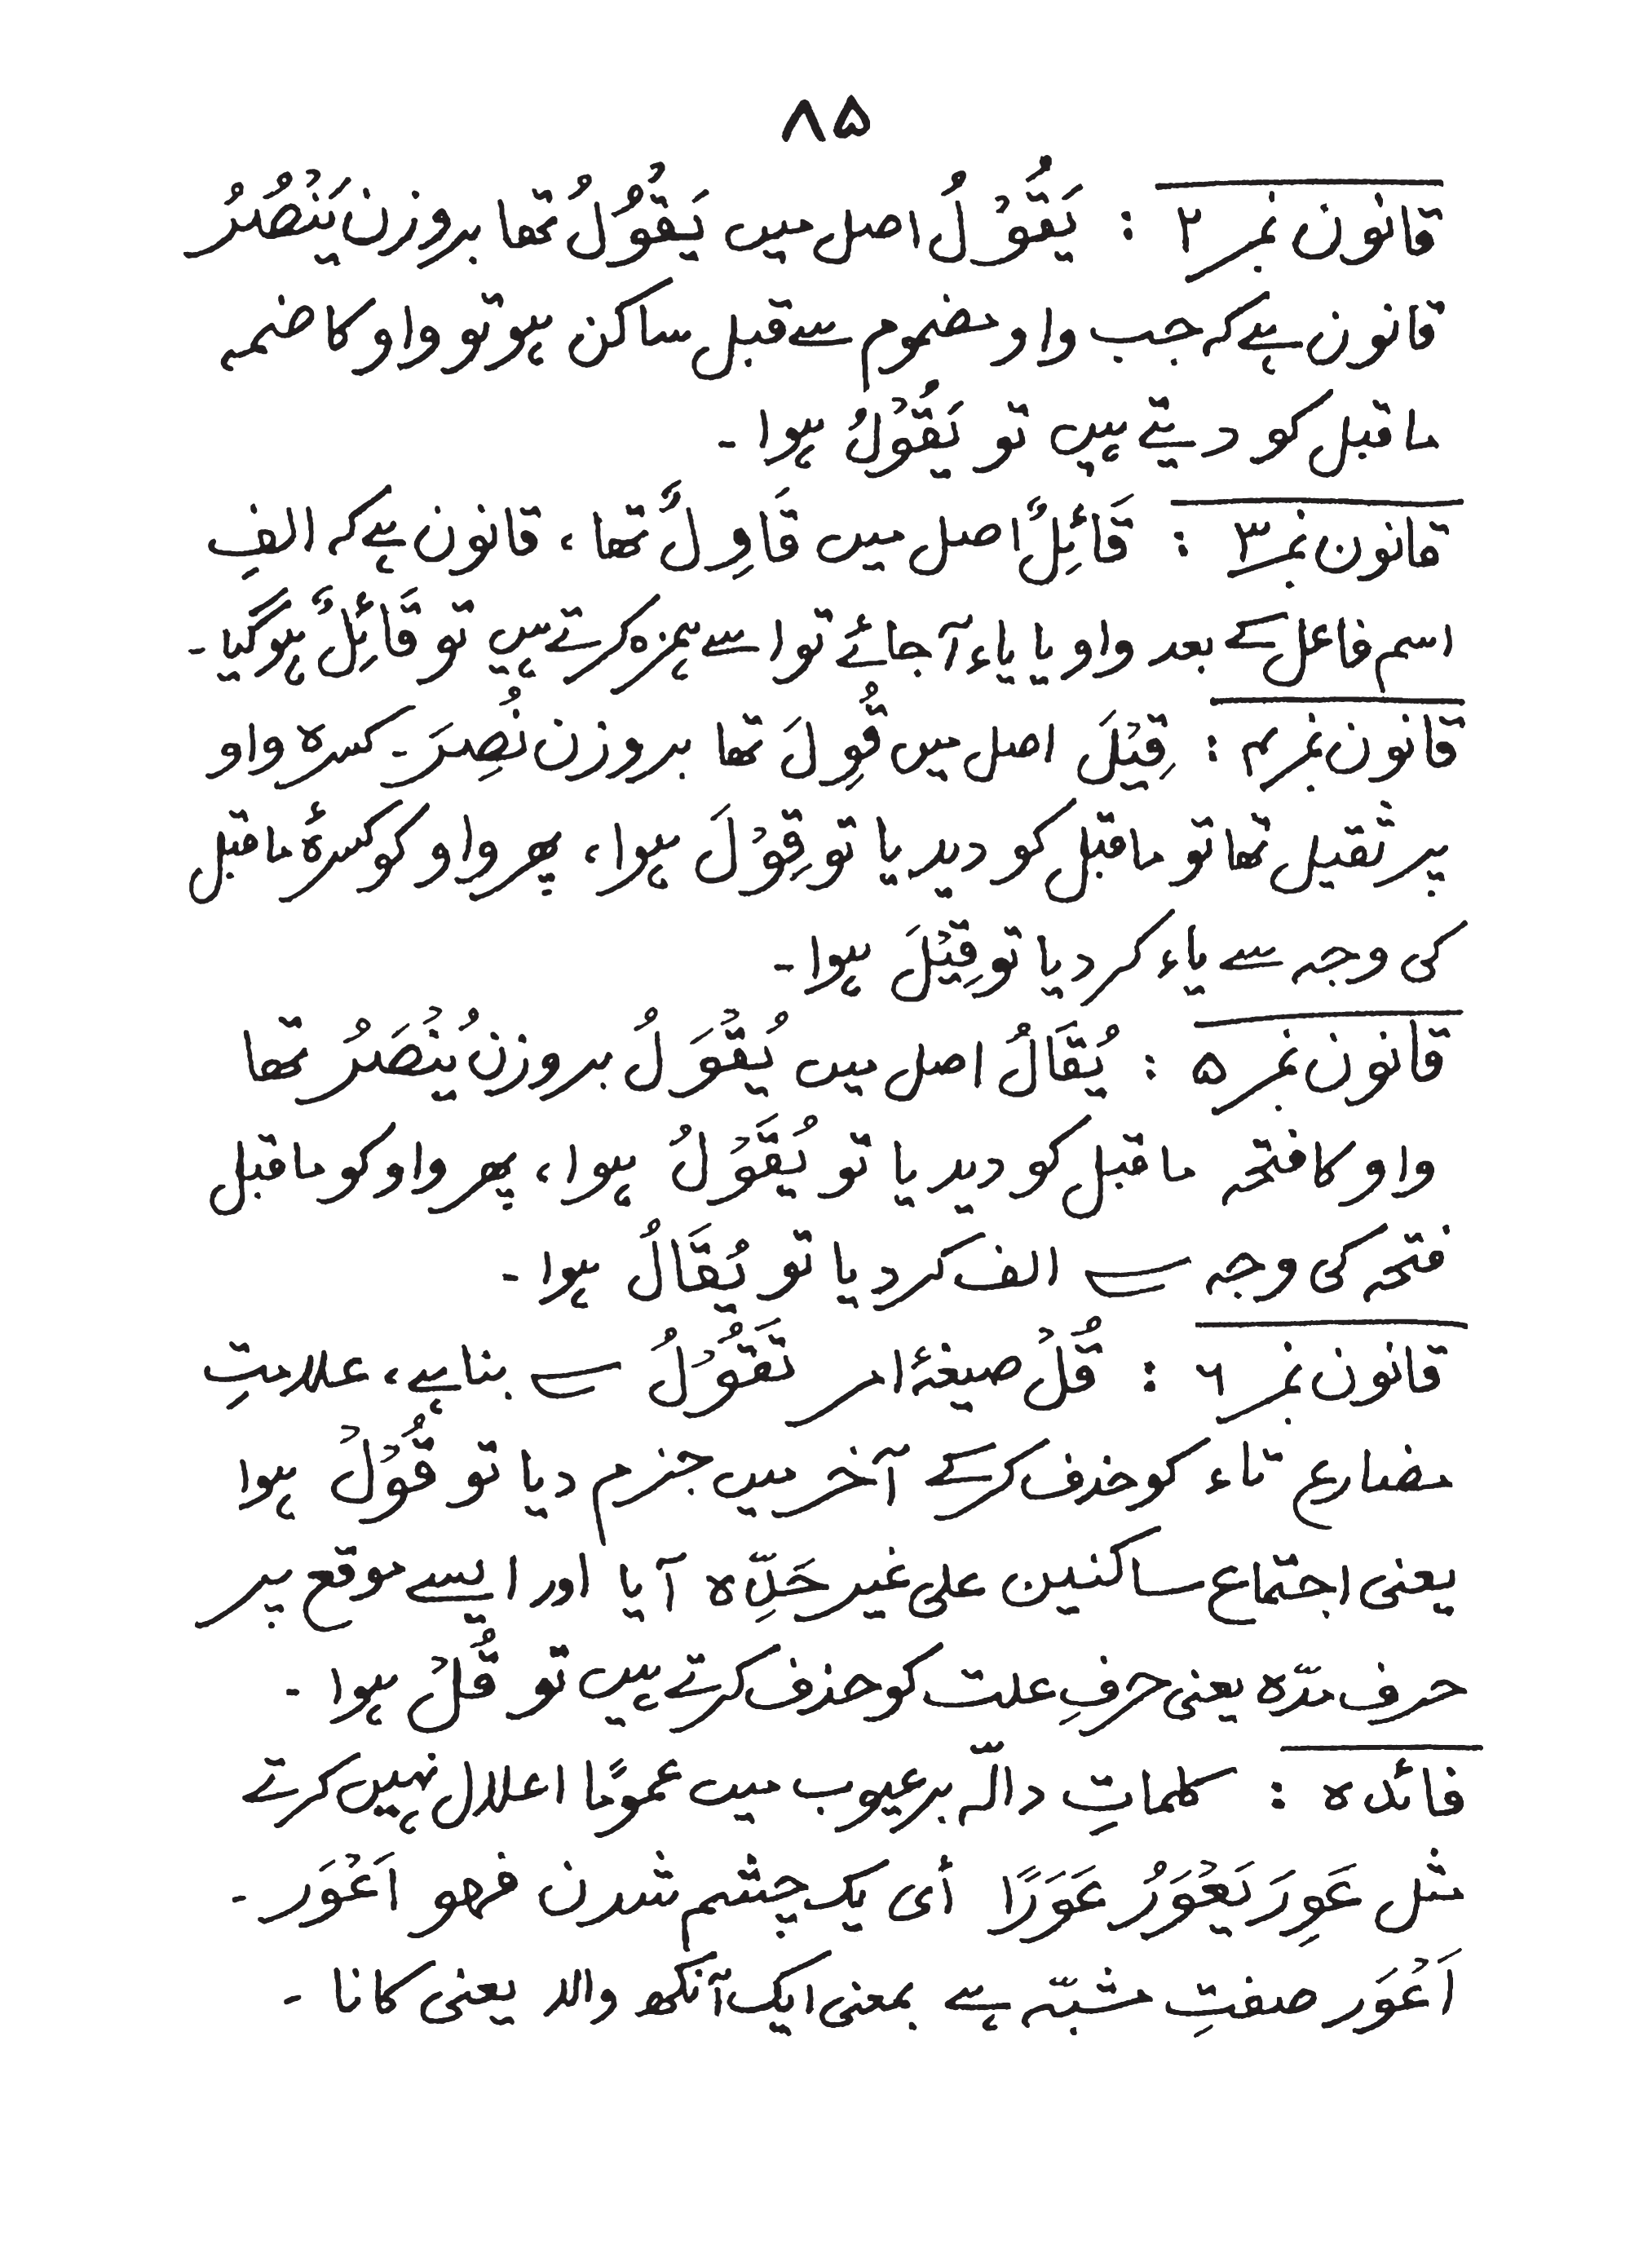 ۸۵
قانون نمبر ۲ : يَقُوْلُ اصل میں يَقْوُلُ تھا بروزن يَنْصُرُ
قانون ہے کہ جب واو مضموم سے قبل ساکن ہو تو واو کا ضمہ
ماقبل کو دیتے ہیں تو يَقُوْلُ ہوا ۔
قانون نمبر ۳ : قَائِلٌ اصل میں قَاوِلٌ تھا، قانون ہے کہ الفِ
اسم فاعل کے بعد واو یا یاء آجائے تو اسے ہمزہ کرتے ہیں تو قَائِلٌ ہوگیا ۔
قانون نمبر ۴ : قِيْلَ اصل میں قُوِلَ تھا بروزن نُصِرَ ۔ کسرہ واو
پر ثقیل تھا تو ماقبل کو دیدیا تو قِوْلَ ہوا، پھر واو کو کسرۂ ماقبل
کی وجہ سے یاء کردیا تو قِيْلَ ہوا ۔
قانون نمبر ۵ : يُقَالُ اصل میں يُقْوَلُ بروزن يُنْصَرُ تھا
واو کا فتحہ ماقبل کو دیدیا تو يُقَوْلُ ہوا، پھر واو کو ماقبل
فتحہ کی وجہ سے الف کردیا تو يُقَالُ ہوا ۔
قانون نمبر ٦ : قُلْ صیغۂ امر تَقُوْلُ سے بنا ہے، علامتِ
مضارع تاء کو حذف کرکے آخر میں جزم دیا تو قُوْلْ ہوا
یعنی اجتماع ساکنین علی غیر حَدِّہ آیا اور ایسے موقع پر
حرف مدّہ یعنی حرفِ علت کو حذف کرتے ہیں تو قُلْ ہوا ۔
فائدہ : کلماتِ دالّہ برعیوب میں عمومًا اعلال نہیں کرتے
مثل عَوِرَ يَعْوَرُ عَوَرًا أی یک چشم شدن فھو اَعْوَر ۔
اَعْوَر صفتِ مشبّہ ہے بمعنی ایک آنکھ والا یعنی کانا ۔